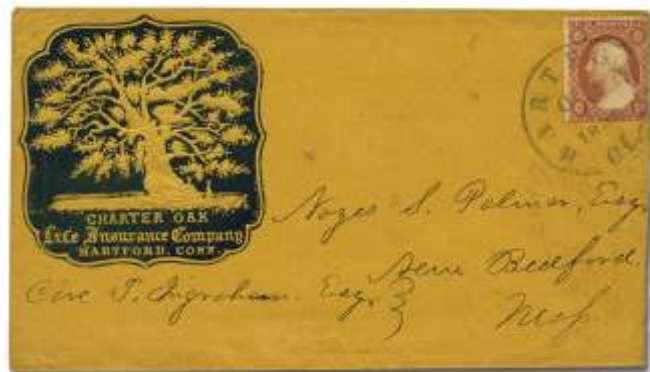 CHARTER OAK
Life Insurance Company
HARTFORD, CONN.
HARTFO
Noyes S. Palmer, Esq.
New Bedford.
Care T. Ingraham. Esq.
Mass